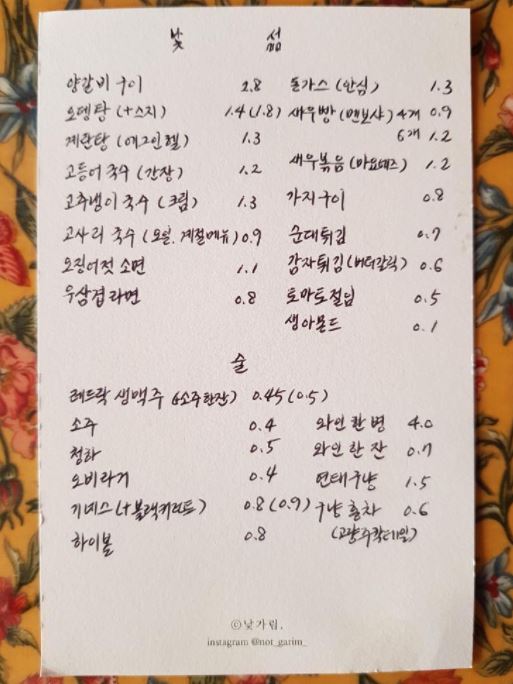 낯 섦
양갈비 구이 2.8
오뎅탕 (+스지) 1.4 (1.8)
계란탕 (에그인헬) 1.3
고등어 국수 (간장) 1.2
고추냉이 국수 (크림) 1.3
고사리 국수 (오일, 계절메뉴) 0.9
오징어젓 소면 1.1
우삼겹 라면 0.8
돈가스 (안심) 1.3
새우빵 (멘보샤) 4개 0.9
6개 1.2
새우볶음 (마요네즈) 1.2
가지구이 0.8
순대튀김 0.7
감자튀김 (버터갈릭) 0.6
토마토절임 0.5
생아몬드 0.1
술
레드락 생맥주 (+소주한잔) 0.45 (0.5)
소주 0.4
청하 0.5
오비라거 0.4
기네스 (+블랙커런트) 0.8 (0.9)
하이볼 0.8
와인 한 병 4.0
와인 한 잔 0.7
연태구냥 1.5
구냥 홍차 0.6
(고량주칵테일)
ⓒ낯가림.
instagram @not_garim_